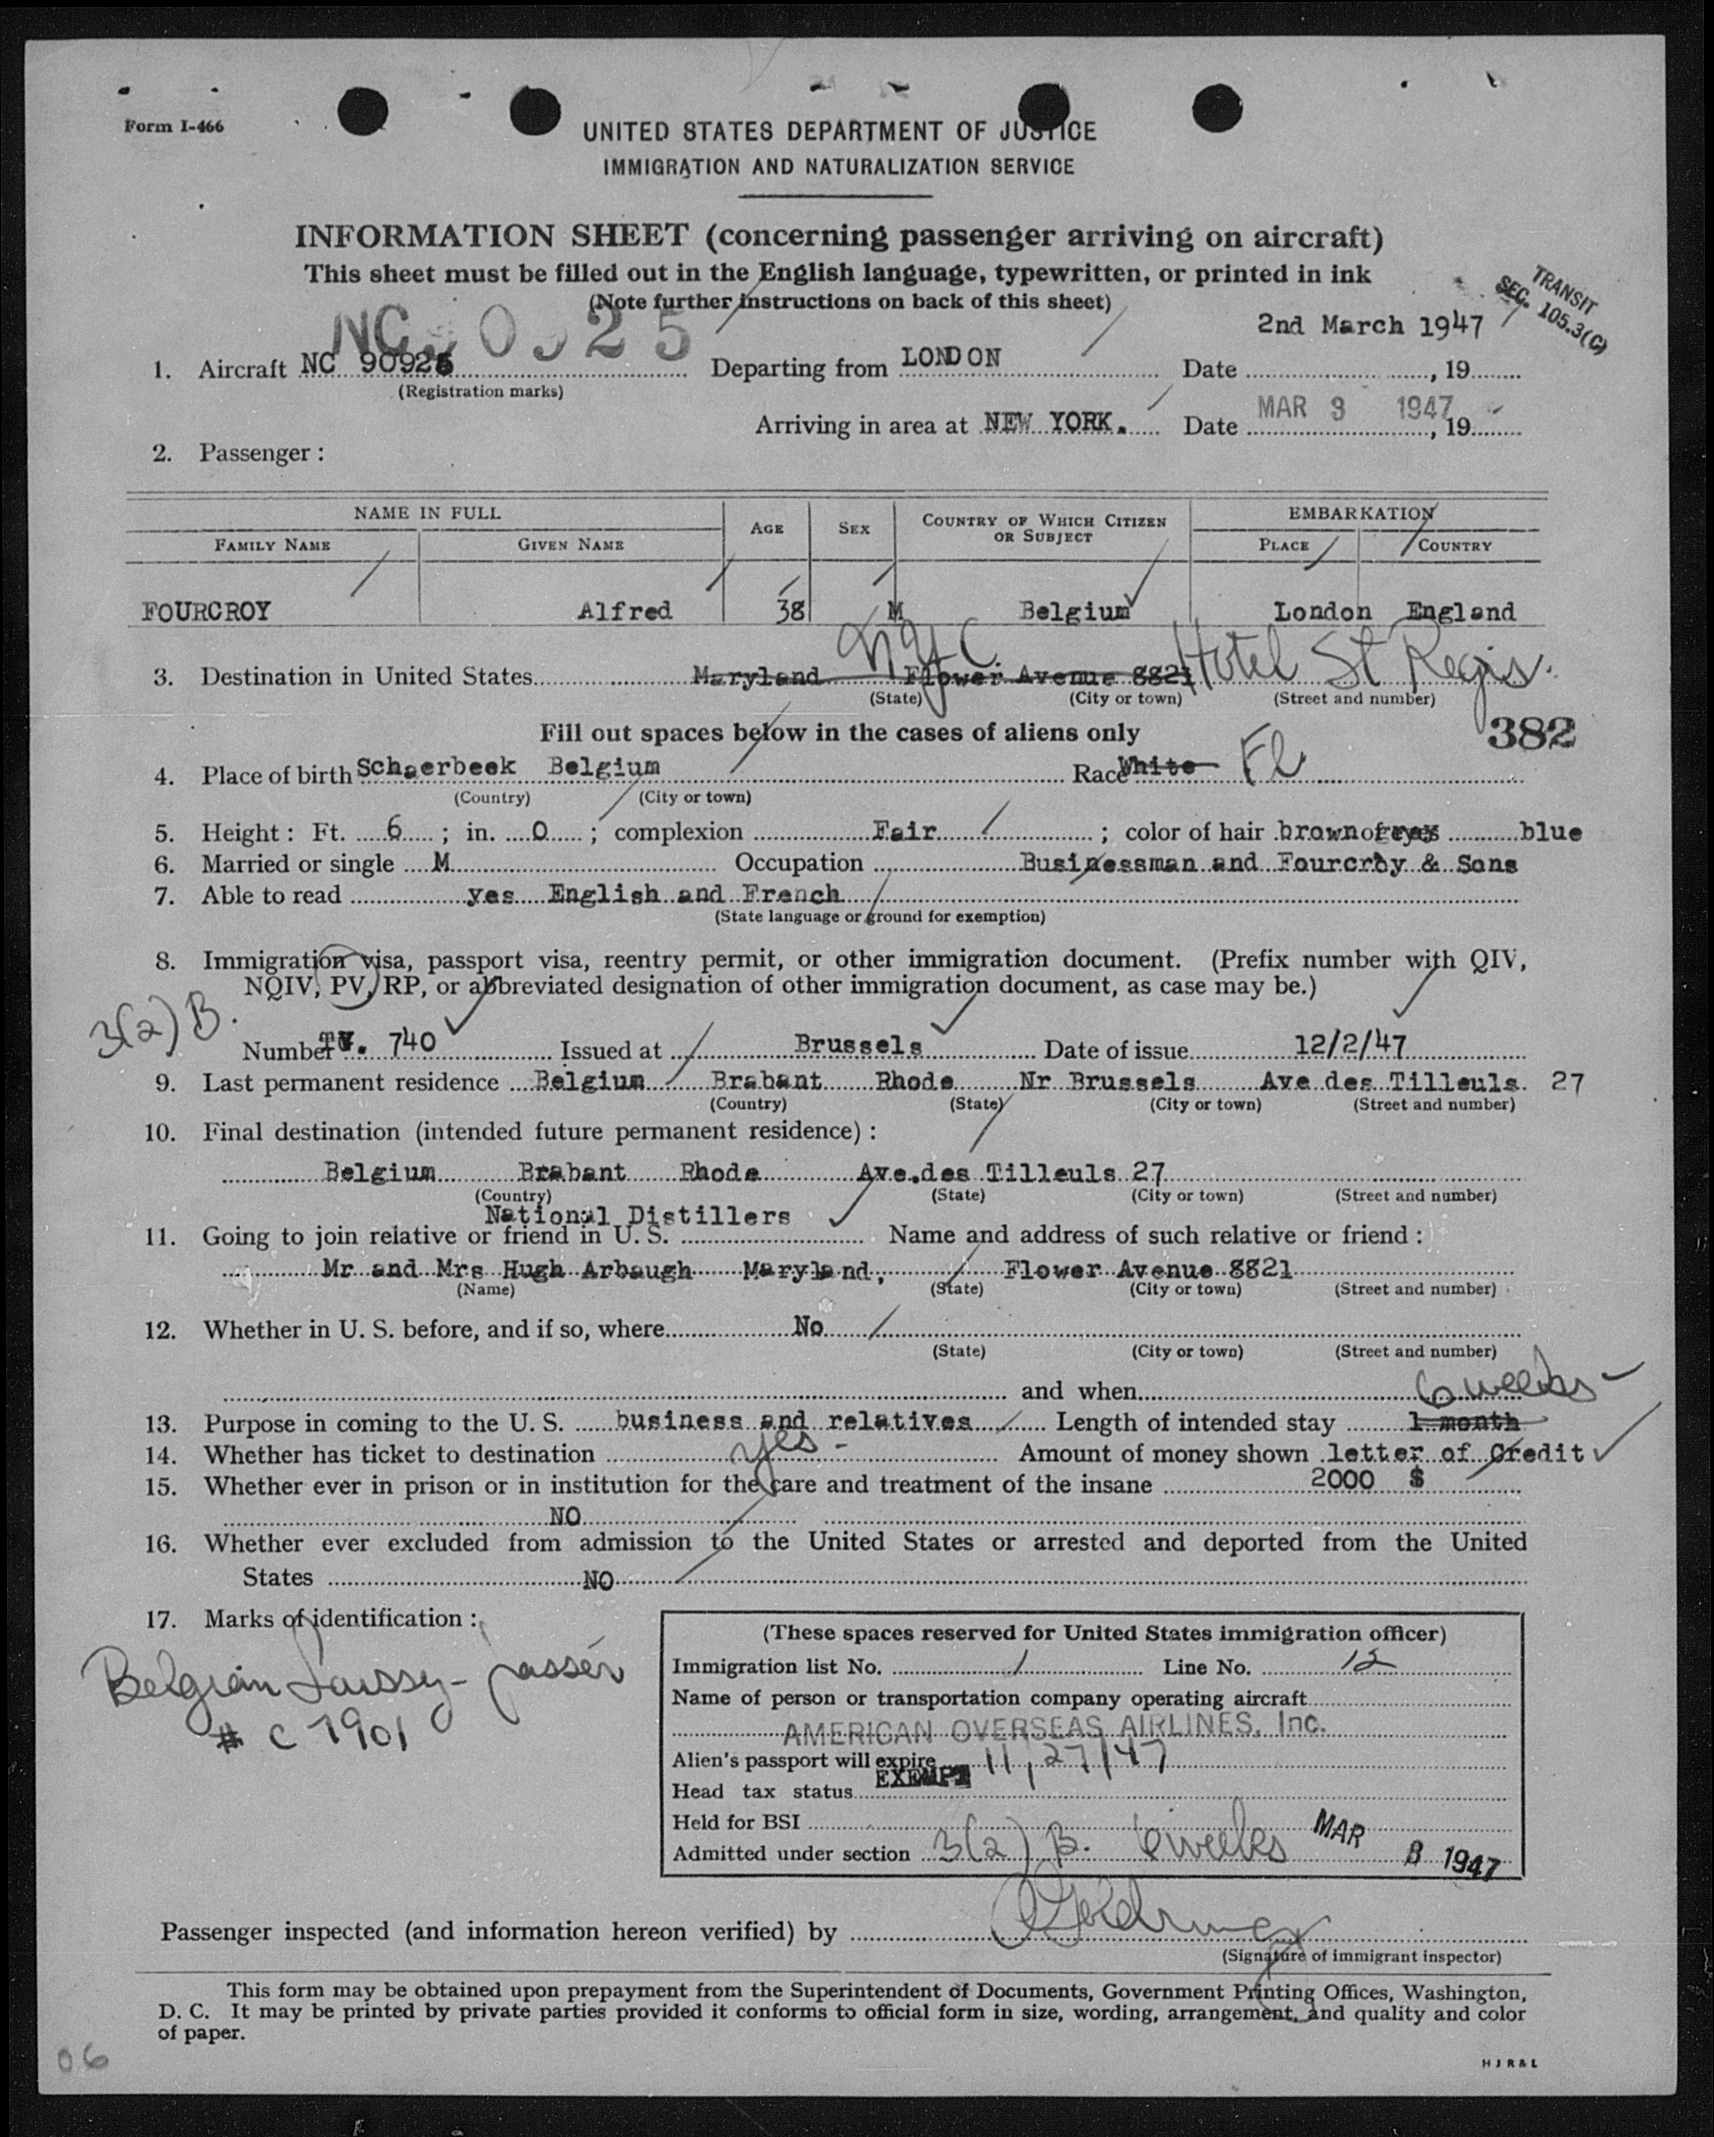 Form I-466
UNITED STATES DEPARTMENT OF JUSTICE
IMMIGRATION AND NATURALIZATION SERVICE
INFORMATION SHEET (concerning passenger arriving on aircraft)
This sheet must be filled out in the English language, typewritten, or printed in ink
(Note further instructions on back of this sheet)
TRANSIT
SEC. 105.3(C)
2nd March 1947
1. Aircraft NC 90925 Departing from LONDON Date , 19
(Registration marks)
Arriving in area at NEW YORK. Date MAR 3 1947, 19
2. Passenger :
NAME IN FULL AGE SEX COUNTRY OF WHICH CITIZEN OR SUBJECT EMBARKATION
FAMILY NAME GIVEN NAME PLACE COUNTRY
FOURCROY Alfred 38 M Belgium London England
NYC. Hotel St Regis.
3. Destination in United States Maryland Flower Avenue 8821
(State) (City or town) (Street and number)
382
Fill out spaces below in the cases of aliens only
4. Place of birth Schaerbeek Belgium Race White Fl
(Country) (City or town)
5. Height : Ft. 6 ; in. 0 ; complexion Fair ; color of hair brown of eyes blue
6. Married or single M Occupation Businessman and Fourcroy & Sons
7. Able to read yes English and French
(State language or ground for exemption)
8. Immigration visa, passport visa, reentry permit, or other immigration document. (Prefix number with QIV,
NQIV, PV, RP, or abbreviated designation of other immigration document, as case may be.)
3(2) B.
Number TV. 740 Issued at Brussels Date of issue 12/2/47
9. Last permanent residence Belgium Brabant Rhode Nr Brussels Ave des Tilleuls 27
(Country) (State) (City or town) (Street and number)
10. Final destination (intended future permanent residence) :
Belgium Brabant Rhode Ave.des Tilleuls 27
(Country) (State) (City or town) (Street and number)
National Distillers
11. Going to join relative or friend in U. S. Name and address of such relative or friend :
Mr and Mrs Hugh Arbaugh Maryland, Flower Avenue 8821
(Name) (State) (City or town) (Street and number)
12. Whether in U. S. before, and if so, where No
(State) (City or town) (Street and number)
and when
6 weeks -
13. Purpose in coming to the U. S. business and relatives Length of intended stay 1 month
14. Whether has ticket to destination yes - Amount of money shown letter of Credit
15. Whether ever in prison or in institution for the care and treatment of the insane 2000 $
NO
16. Whether ever excluded from admission to the United States or arrested and deported from the United
States NO
17. Marks of identification :
Belgian Laissy-passer
# C 7901
(These spaces reserved for United States immigration officer)
Immigration list No. 1 Line No. 12
Name of person or transportation company operating aircraft
AMERICAN OVERSEAS AIRLINES, Inc.
Alien's passport will expire 11/27/47
Head tax status EXEMPT
Held for BSI
Admitted under section 3(2) B. 6 weeks MAR 3 1947
Passenger inspected (and information hereon verified) by
(Signature of immigrant inspector)
This form may be obtained upon prepayment from the Superintendent of Documents, Government Printing Offices, Washington,
D. C. It may be printed by private parties provided it conforms to official form in size, wording, arrangement, and quality and color
of paper.
06
HJR&L